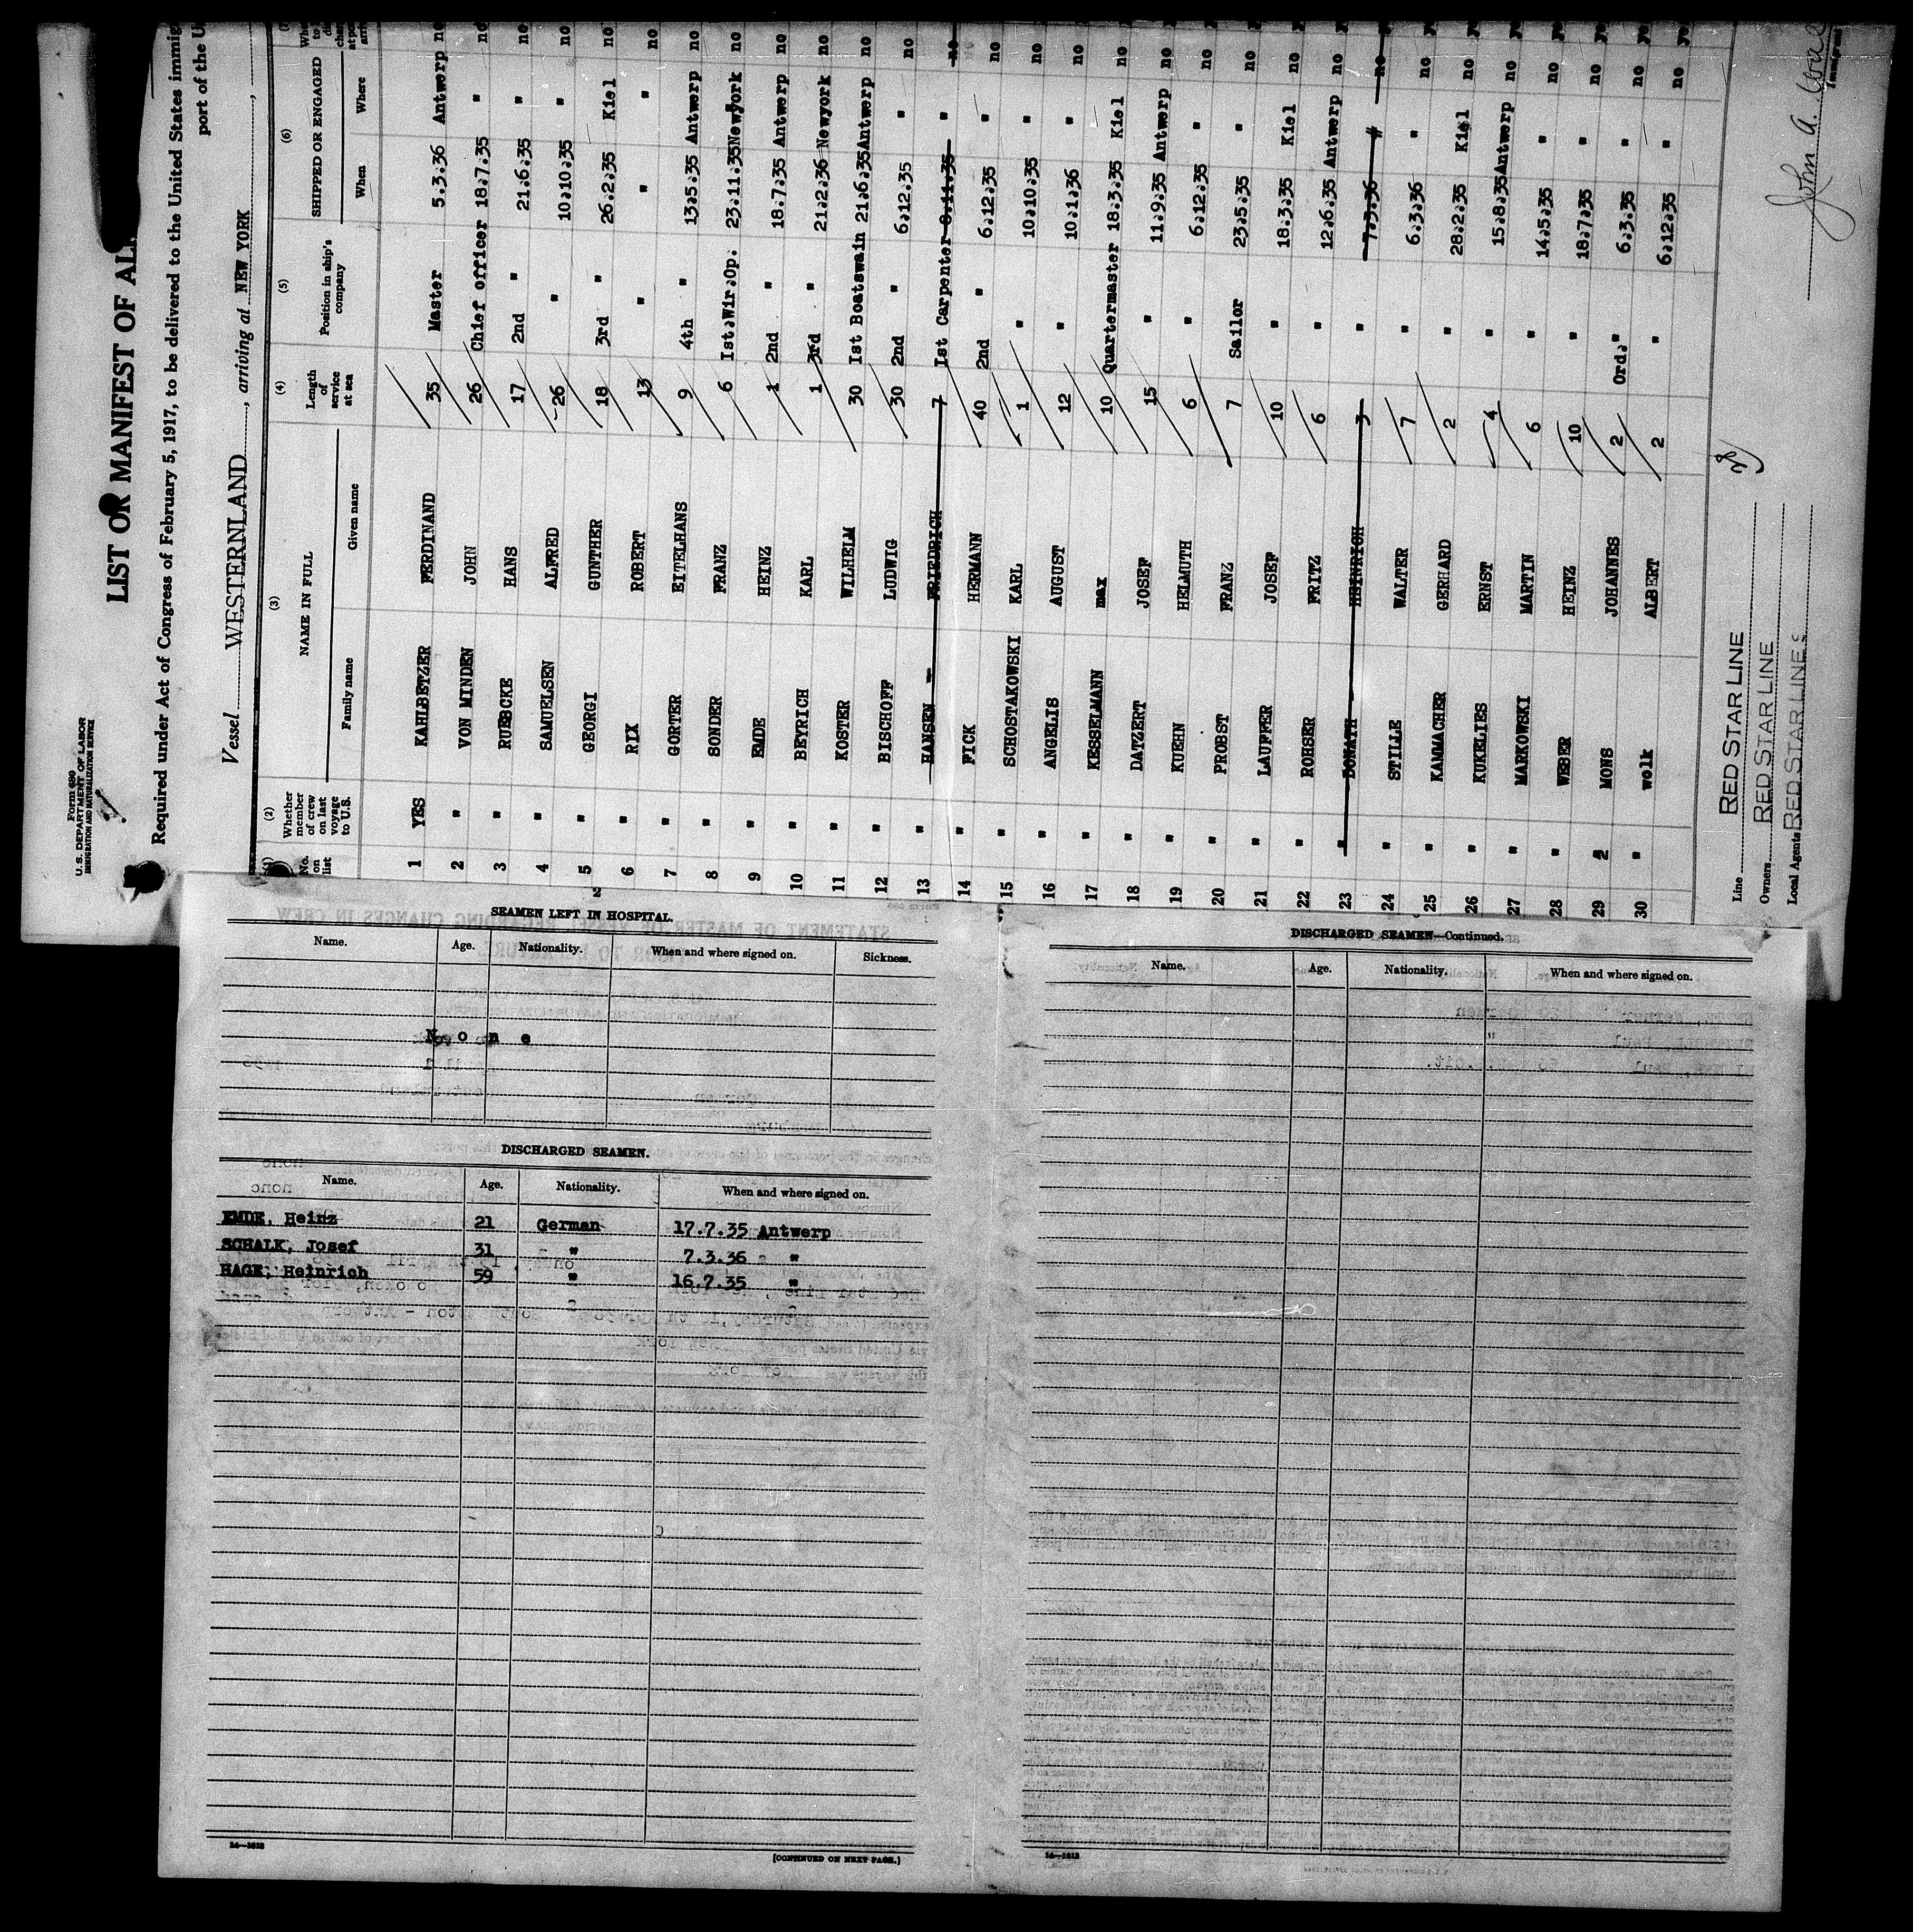 Form 680
U. S. DEPARTMENT OF LABOR
IMMIGRATION AND NATURALIZATION SERVICE
LIST OR MANIFEST OF
Required under Act of Congress of February 5, 1917, to be delivered to the United States
port of the
Vessel WESTERNLAND, arriving at NEW YORK,
(1) (2) (3) (4) (5) (6)
No. on list Whether member of crew on last voyage to U.S. NAME IN FULL Length of service at sea Position in ship's company SHIPPED OR ENGAGED
Family name Given name When Where
1 YES KAHLBETZER FERDINAND 35 Master 5.3.36 Antwerp
2 " VON MINDEN JOHN 26 Chief officer 18.7.35 " no
3 " RUEBCKE HANS 17 2nd " 21.6.35 " no
4 " SAMUELSEN ALFRED 26 " 10.10.35 " no
5 " GEORGI GUNTHER 18 3rd " 26.2.35 Kiel no
6 " RIX ROBERT 13 " " " no
7 " GORTER EITELHANS 9 4th " 13.5.35 Antwerp no
8 " SONDER FRANZ 6 Ist.Wir.Op. 23.11.35 Newyork no
9 " EMDE HEINZ 1 2nd " 18.7.35 Antwerp no
10 " BEYRICH KARL 1 3rd " 21.2.36 Newyork no
11 " KOSTER WILHELM 30 Ist Boatswain 21.6.35 Antwerp no
12 " BISCHOFF LUDWIG 30 2nd " 6.12.35 " no
13 " HANSEN FRIEDRICH 7 Ist Carpenter 8.11.35 " no
14 " FICK HERMANN 40 2nd " 6.12.35 " no
15 " SCHOSTAKOWSKI KARL 1 " 10.10.35 " no
16 " ANGELIS AUGUST 12 " 10.1.36 " no
17 " KESSELMANN max 10 Quartermaster 18.3.35 Kiel no
18 " DATZERT JOSEF 15 " 11.9.35 Antwerp no
19 " KUEHN HELMUTH 6 " 6.12.35 " no
20 " PROBST FRANZ 7 Sailor 23.5.35 " no
21 " LAUFFER JOSEF 10 " 18.3.35 Kiel no
22 " ROHSER FRITZ 6 " 12.6.35 Antwerp no
23 " DONATH HEINRICH 3 " 7.3.36 " no
24 " STILLE WALTER 7 " 6.3.36 " no
25 " KAMMACHER GERHARD 2 " 28.2.35 Kiel no
26 " KUKELIES ERNST 4 " 15.8.35 Antwerp no
27 " MARKOWSKI MARTIN 6 " 14.5.35 " no
28 " WEBER HEINZ 10 " 18.7.35 " no
29 MONS JOHANNES 2 Ord." 6.3.35 " no
30 " wolk ALBERT 2 " 6.12.35 " no
Line RED STAR LINE
Owners RED STAR LINE
Local Agents RED STAR LINE
John A.
SEAMEN LEFT IN HOSPITAL.
Name. Age. Nationality. When and where signed on. Sickness.
None
DISCHARGED SEAMEN.
Name. Age. Nationality. When and where signed on.
EMDE, Heinz 21 German 17.7.35 Antwerp
SCHALK, Josef 31 " 7.3.36 "
HAGE, Heinrich 59 " 16.7.35 "
14—1613
[CONTINUED ON NEXT PAGE.]
DISCHARGED SEAMEN—Continued.
Name. Age. Nationality. When and where signed on.
14—1613